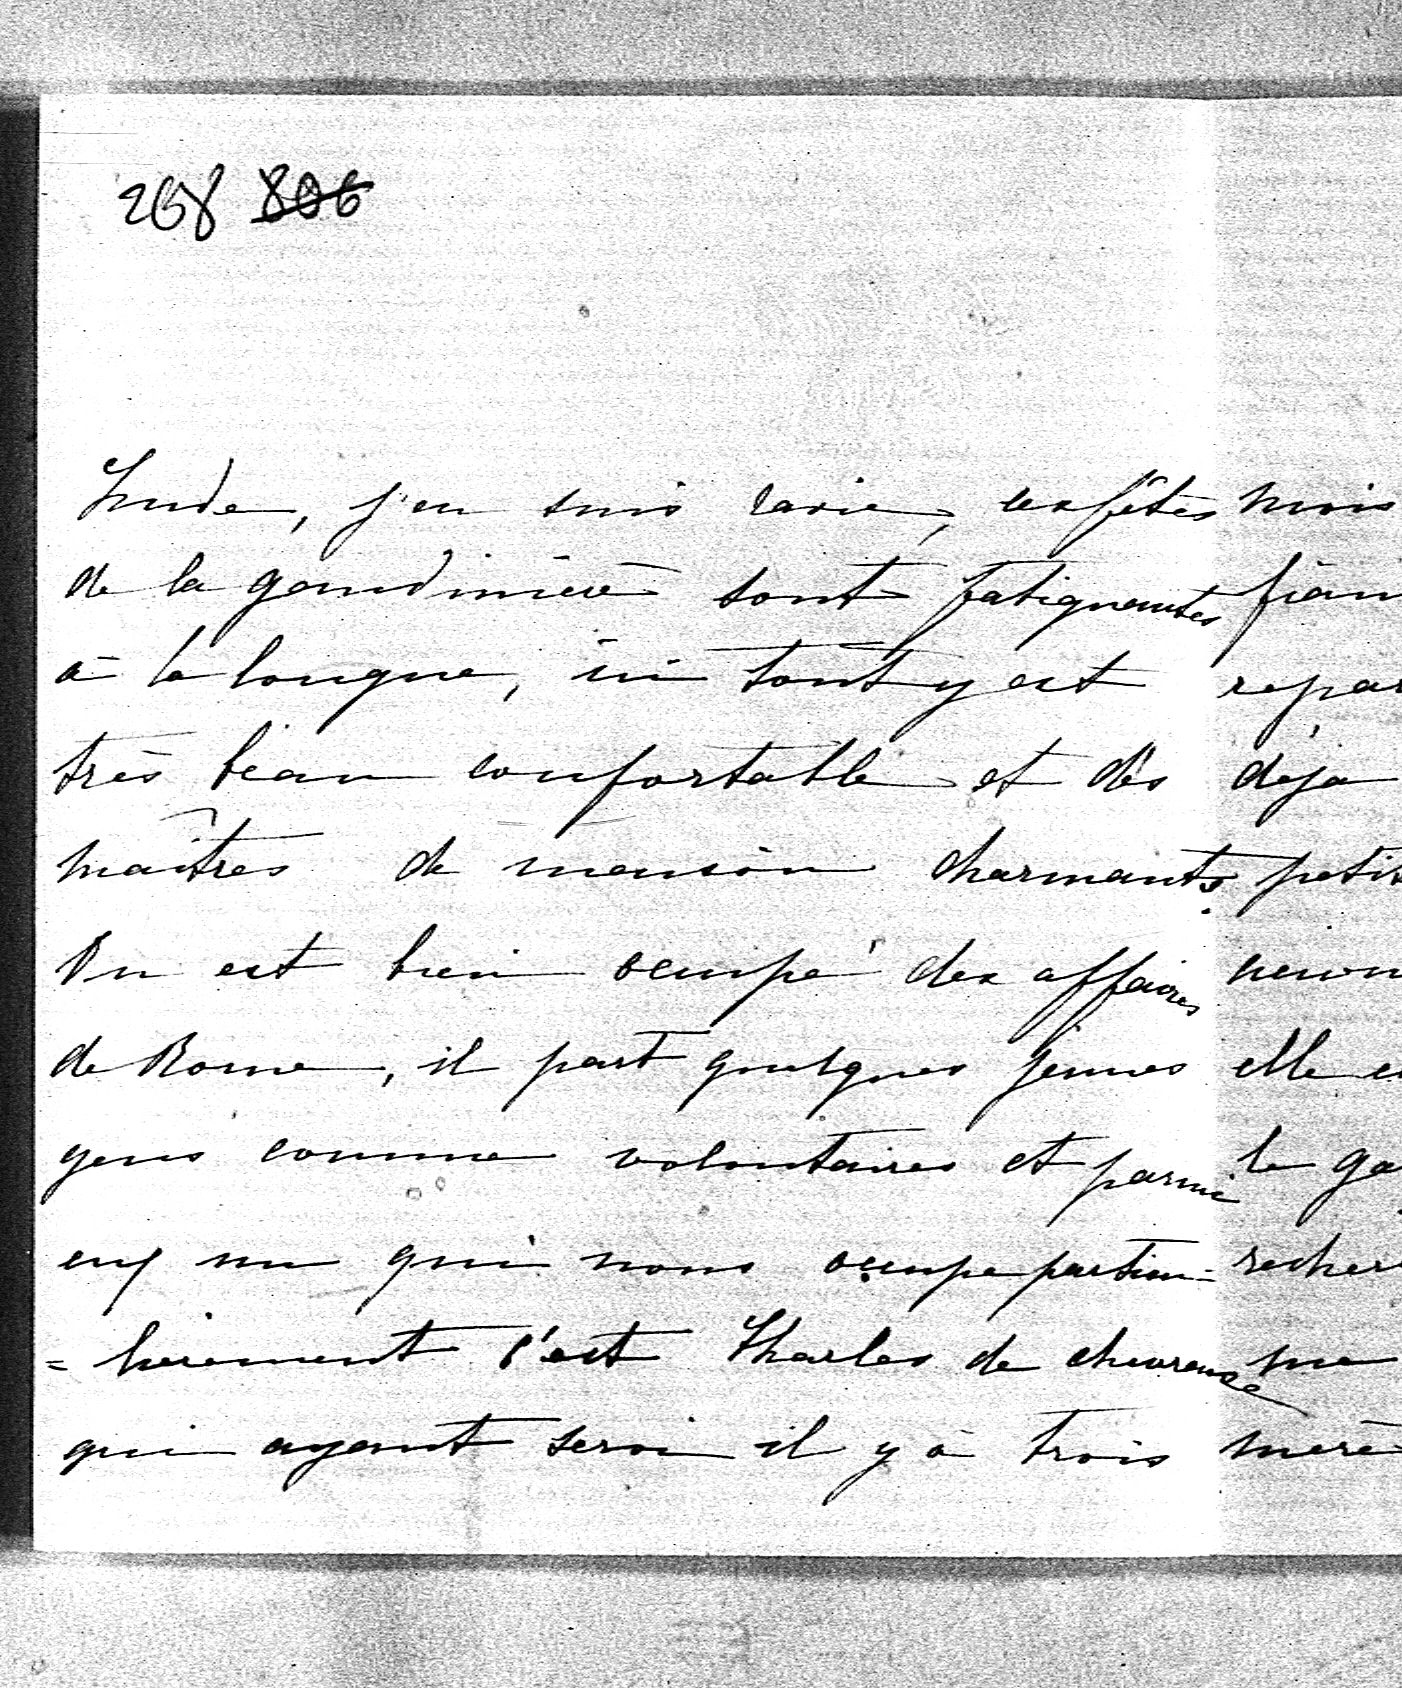 268 806
Lude, j'en suis ravie, les fêtes
de la gaudiniere sont fatiguantes
à la longue, ici tout y est
très beau confortable et des
maîtres de maison charmants.
On est bien ocupé des affaires
de Rome, il part quelques jeunes
gens comme volontaires et parmi
eux un qui nous ocupe particu=
=lierement c'est Charles de chevreuse
qui ayant servi il y à trois
mois
repar
déja
petit
elle e
le ga
recher
me
mere